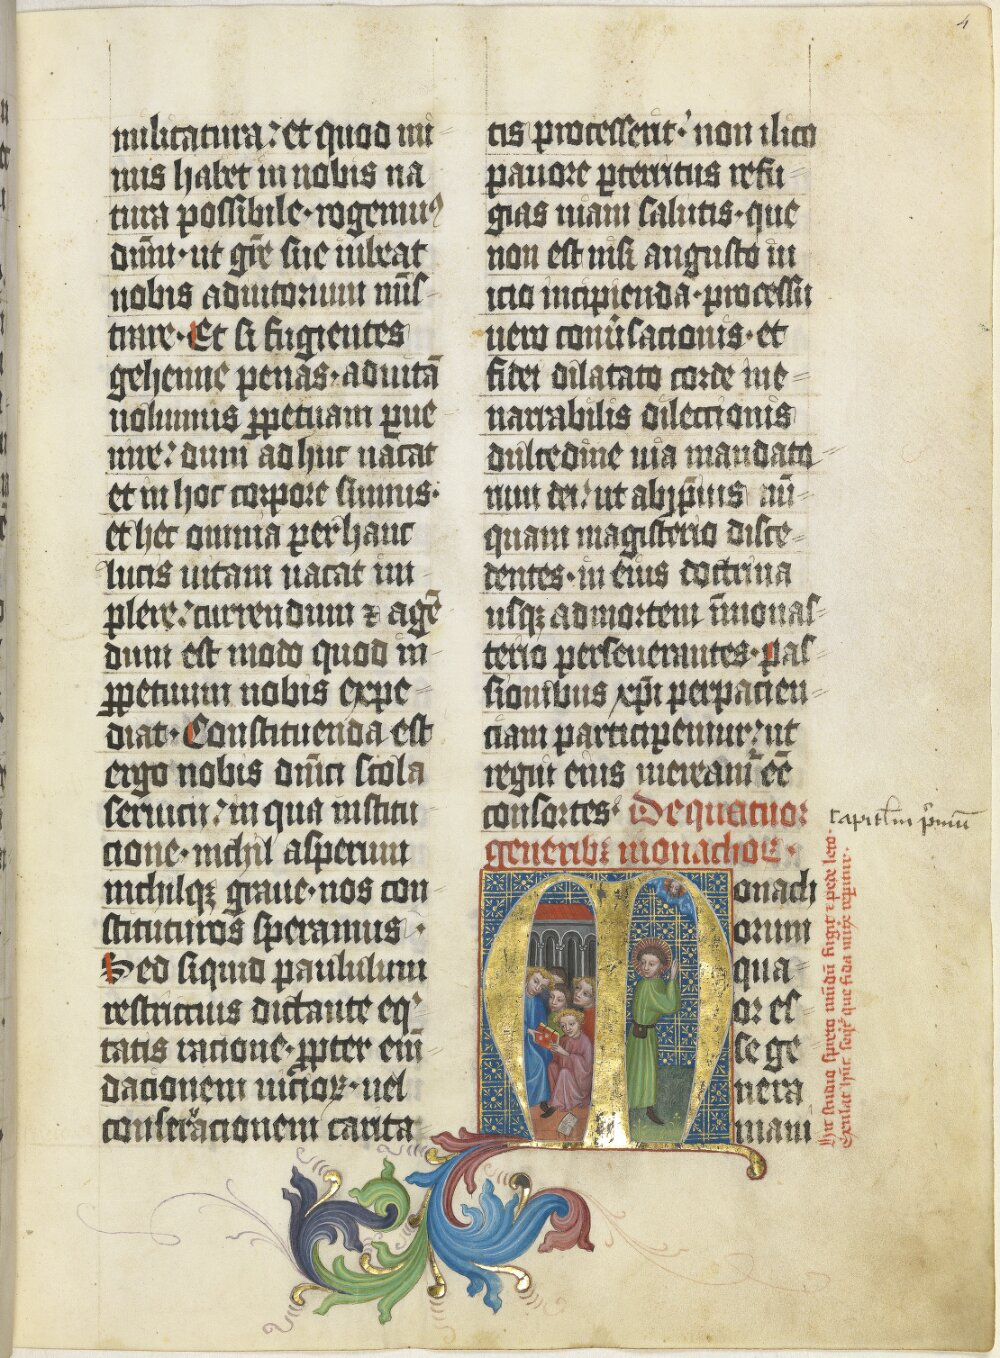 4
militatura: et quod mi
nus habet in nobis na
tura possibile · rogemus
dnm̄ · ut grē sue iubeat
nobis adiutorium mīs
trare · Et si fugientes
gehenne penas · ad uitā
uolumus ꝑpetuam ꝑue
nire: dum ad huc uacat
et in hoc corpore sumus ·
et hec omnia per hanc
lucis uitam uacat im
plere: currendum ⁊ agē
dum est modo quod in
ꝑpetuum nobis expe
diat · Constituenda est
ergo nobis dnīci scola
seruicii: in qua institu
cione · nichil asperum
nichilqꝫ graue · nos con
stituturos speramus ·
Sed siquid paululum
restrictius dictante eq
tatis racione · ꝓpter em̄
dacionem uicioꝝ · uel
conseruacionem carita
tis processerit: non ilico
pauore ꝑterritus refu
gias uiam salutis · que
non est nisi angusto in
icio incipienda · processu
uero conūsacionis · et
fidei dilatato corde ine
narrabilis dilectionis
dulcedine uia mandato
rum dei: ut ab ipīus nū
quam magisterio disce
dentes · in eius doctrina
usqꝫ ad mortem in monas
terio perseuerantes · pas
sionibus xp̄i per pacien
ciam participemur: ut
regni eius mereamur eē
consortes · De quatuor
generibꝫ monachoꝝ ·
Monach
orum
qua
or es
se ge
nera
mani
capitlm pͥmū
Hic studio spreto mūdū fugit ⁊ pede leto ·